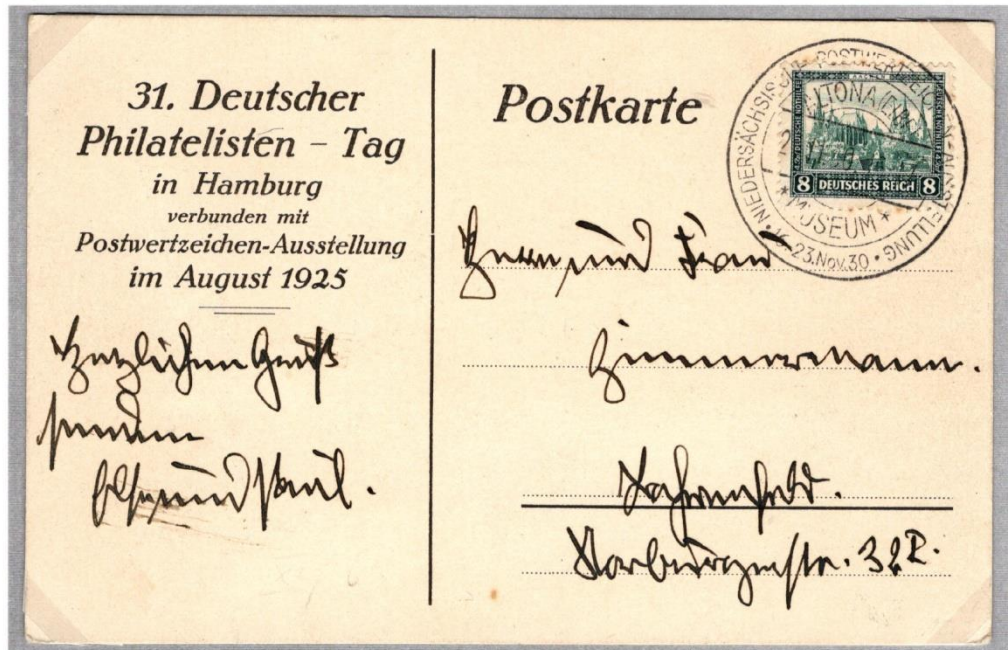 31. Deutscher
Philatelisten – Tag
in Hamburg
verbunden mit
Postwertzeichen-Ausstellung
im August 1925
Herzlichen Gruß
senden
Else und Paul.
Postkarte
NIEDERSÄCHSISCHE POSTWERTZEICHEN-AUSSTELLUNG
ALTONA
MUSEUM
23. Nov. 30
8 DEUTSCHES REICH 8
Herrn und Frau
Zimmermann.
Bahrenfeld.
32